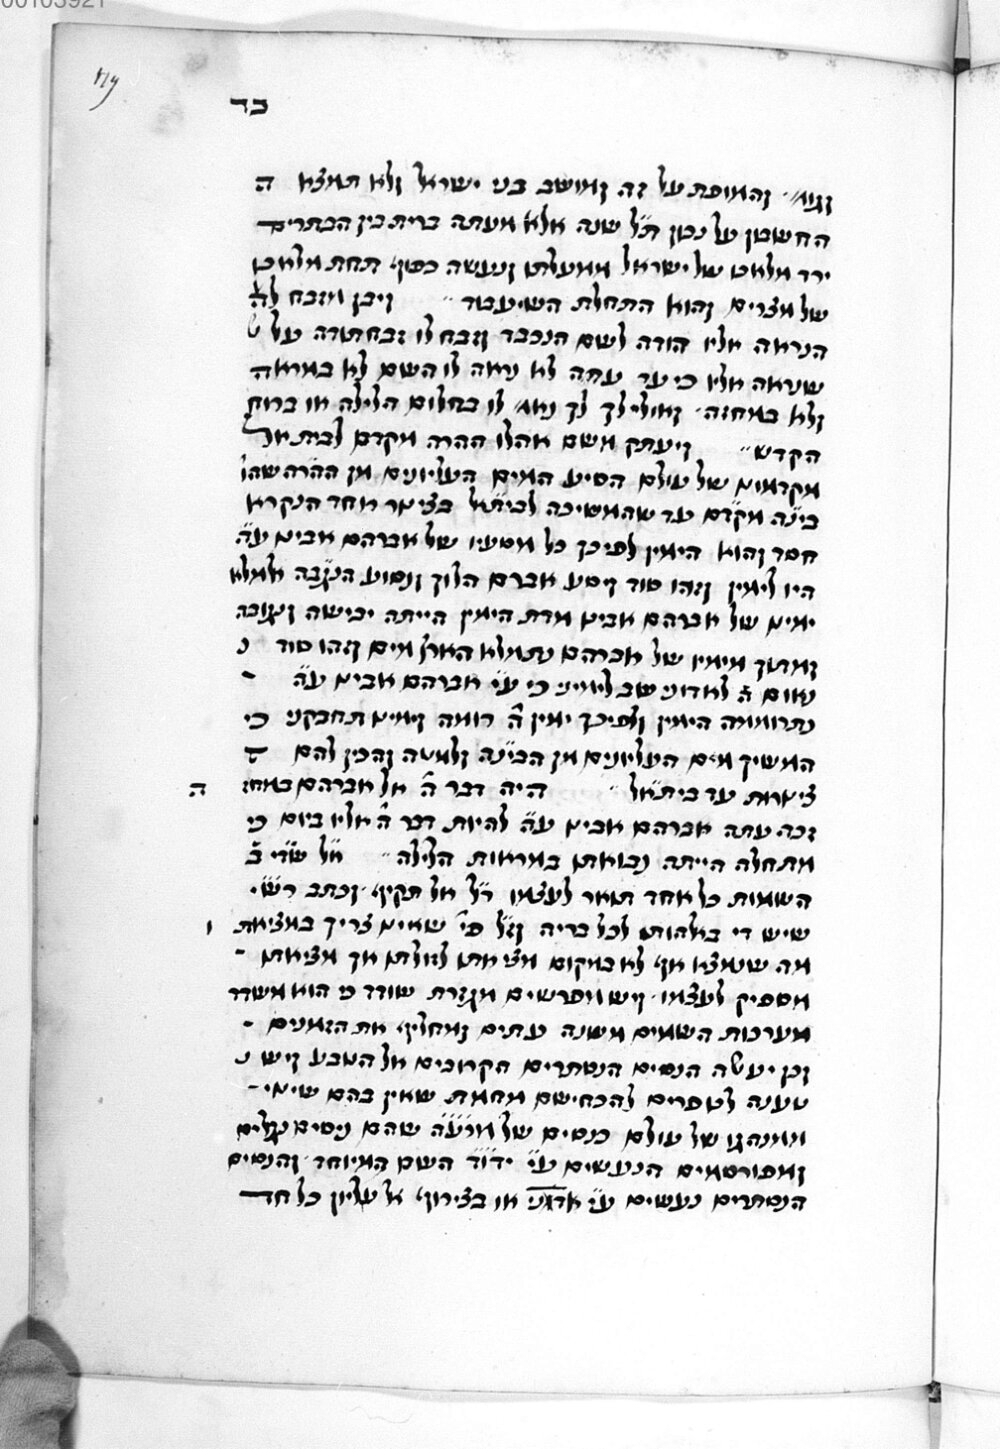 00103921
119
כד
וגומ'. והמופת על זה ומושב בני ישראל ולא תמצא ה
החשבון על נכון ת"ל שנה אלא מעתה ברית בין הבתרים
ירד מלאכו של ישראל ממעלתו ונעשה כפוף תחת מלאכו
של מצרים והוא התחלת השיעבוד ״ ויבן מזבח לה'
הנראה אליו הודה לשם הנכבד וזבח לו זבח תודה על ש
שנראה אליו כי עד עתה לא נראה לו השם לא במראה
ולא במחזה. ואולי לך לך נאמ' לו בחלום הלילה או ברוח
הקדש ״ ויעתק משם אהלו ההרה מקדם לבית אל
מקדמונו של עולם הסיע המים העליונים מן ההרה שהו'
בינה מקדם עד שהמשיכה לבית אל בצינור אחד הנקרא
חסד והוא הימין לפיכך כל מסעיו של אברהם אבינו ע"ה
היו לימין וזהו סוד ויסע אברם הלוך ונסוע הנגבה אלמלא
ימינו של אברהם אבינו מדת הימין הייתה יבישה ונגובה
ומדשן מימיו של אברהם נתמלא הארץ מים וזהו סוד נ
נאום ה' לאדוני שב לימיני כי ע"י אברהם אבינו ע"ה
נתרוממה הימין ולפיכך ימין ה' רוממה וימינו תחבקני כי
המשיך מים העליונים מן הבינה ולמטה והכין להם ה
צינורות עד בית אל ״ היה דבר ה' אל אברהם במחז' ה
זכה עתה אברהם אבינו ע"ה להיות דבר ה' אליו ביום כי
מתחלה הייתה נבואתו במראות הלילה ״ אל שדי ב'
השמות כל אחד תואר לעצמו ר"ל אל תקיף. וכתב רש"י
שיש די באלהותו לכל בריה וז"ל פי' שאינו צריך במציאות ו
מה שנמצא אף לא במקום מציאתו לזולתו אך מציאתו
מספיק לעצמו. ויש מפרשים מגזרת שודד כי הוא משדד
מערכות השמים משנה עתים ומחליף את הזמנים
וכן יעשה הנסים הנסתרים הקרובים אל הטבע ויש נ
טענה לכופרים להכחישם מחמת שאין בהם שינוי
ממנהגו של עולם כנסים של מרע"ה שהם ניסים נגלים
ומפורסמים הנעשים ע"י ידו"ד השם המיוחד. והנסים
הנסתרים נעשים ע"י אדני או בצירוף אל עליון כל חד